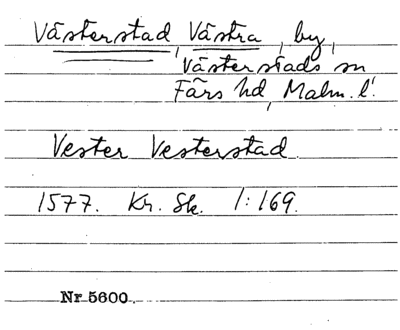 Västerstad, Västra, by,
Västerstads sn
Färs hd, Malm. l.
Vester Vesterstad.
1577. Kr. Sk. 1:169.
Nr 5600.